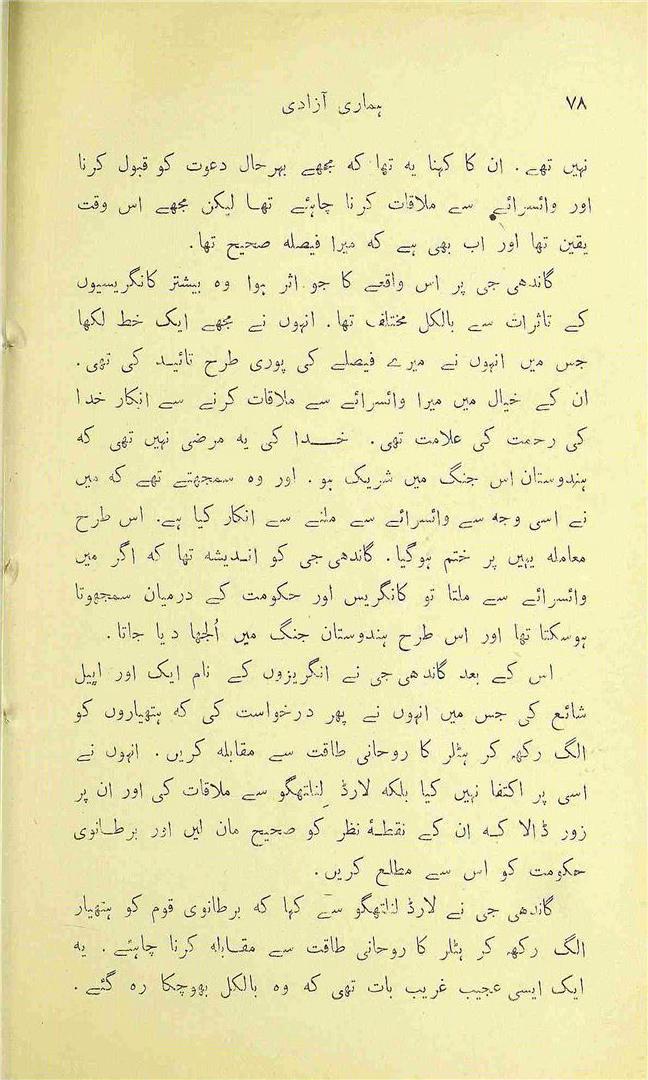 ۷۸
ہماری آزادی
نہیں تھے۔ ان کا کہنا یہ تھا کہ مجھے بہرحال دعوت کو قبول کرنا
اور وائسرائے سے ملاقات کرنا چاہئے تھا لیکن مجھے اس وقت
یقین تھا اور اب بھی ہے کہ میرا فیصلہ صحیح تھا۔
گاندھی جی پر اس واقعے کا جو اثر ہوا وہ بیشتر کانگریسیوں
کے تاثرات سے بالکل مختلف تھا۔ انہوں نے مجھے ایک خط لکھا
جس میں انہوں نے میرے فیصلے کی پوری طرح تائید کی تھی۔
ان کے خیال میں میرا وائسرائے سے ملاقات کرنے سے انکار خدا
کی رحمت کی علامت تھی۔ خدا کی یہ مرضی نہیں تھی کہ
ہندوستان اس جنگ میں شریک ہو۔ اور وہ سمجھتے تھے کہ میں
نے اسی وجہ سے وائسرائے سے ملنے سے انکار کیا ہے۔ اس طرح
معاملہ یہیں پر ختم ہوگیا۔ گاندھی جی کو اندیشہ تھا کہ اگر میں
وائسرائے سے ملتا تو کانگریس اور حکومت کے درمیان سمجھوتا
ہوسکتا تھا اور اس طرح ہندوستان جنگ میں اُلجھا دیا جاتا۔
اس کے بعد گاندھی جی نے انگریزوں کے نام ایک اور اپیل
شائع کی جس میں انہوں نے پھر درخواست کی کہ ہتھیاروں کو
الگ رکھ کر ہٹلر کا روحانی طاقت سے مقابلہ کریں۔ انہوں نے
اسی پر اکتفا نہیں کیا بلکہ لارڈ لِنلتھگو سے ملاقات کی اور ان پر
زور ڈالا کہ ان کے نقطۂ نظر کو صحیح مان لیں اور برطانوی
حکومت کو اس سے مطلع کریں۔
گاندھی جی نے لارڈ لنلتھگو سے کہا کہ برطانوی قوم کو ہتھیار
الگ رکھ کر ہٹلر کا روحانی طاقت سے مقابلہ کرنا چاہئے۔ یہ
ایک ایسی عجیب غریب بات تھی کہ وہ بالکل بھوچکا رہ گئے۔